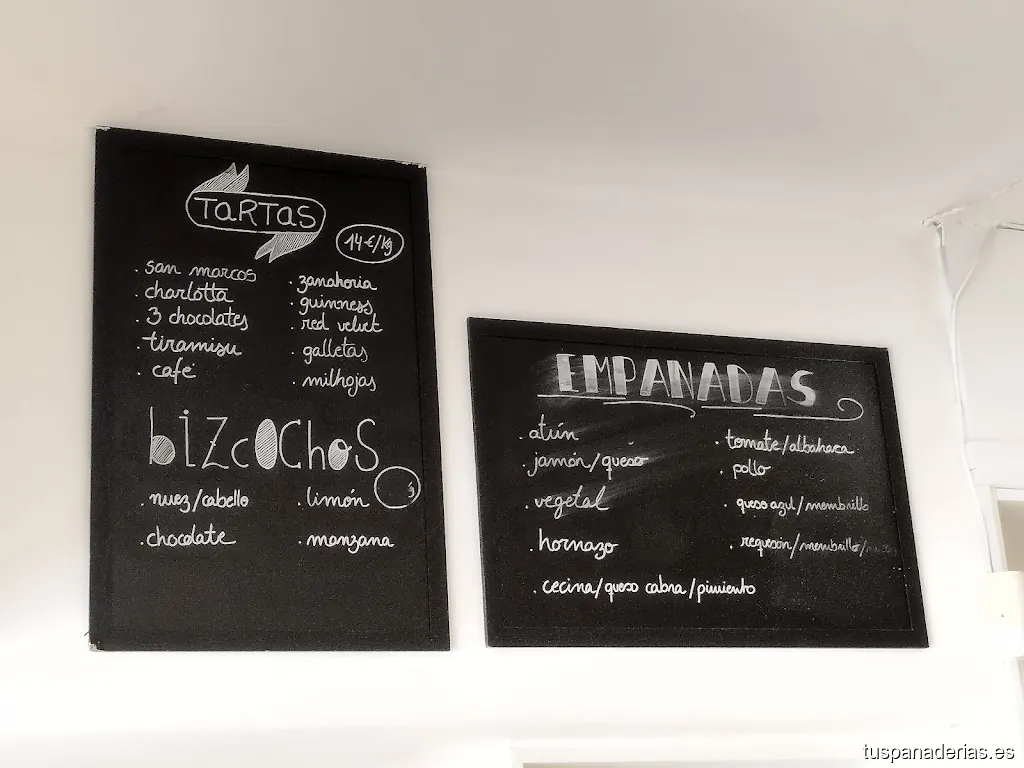 TARTAS
14€/kg
. san marcos
. charlotta
. 3 chocolates
. tiramisu
. café
. zanahoria
. guinness
. red velvet
. galletas
. milhojas
bizcochos
. nuez/cabello
. chocolate
. limón
. manzana
EMPANADAS
. atún
. jamón/queso
. vegetal
. hornazo
. tomate/albahaca
. pollo
. queso azul/membrillo
. requesón/membrillo/
. cecina/queso cabra/pimiento
tuspanaderias.es